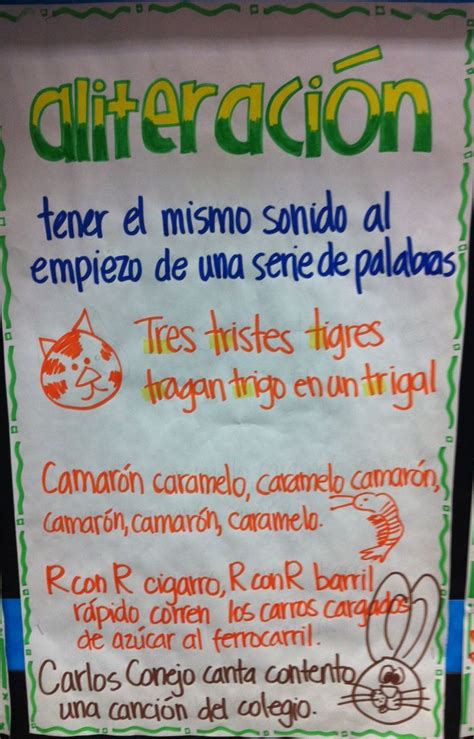 aliteración
tener el mismo sonido al
empiezo de una serie de palabras
Tres tristes tigres
tragan trigo en un trigal
Camarón caramelo, caramelo camarón,
camarón, camarón, caramelo.
R con R cigarro, R con R barril
rápido corren los carros cargados
de azúcar al ferrocarril.
Carlos Conejo canta contento
una canción del colegio.